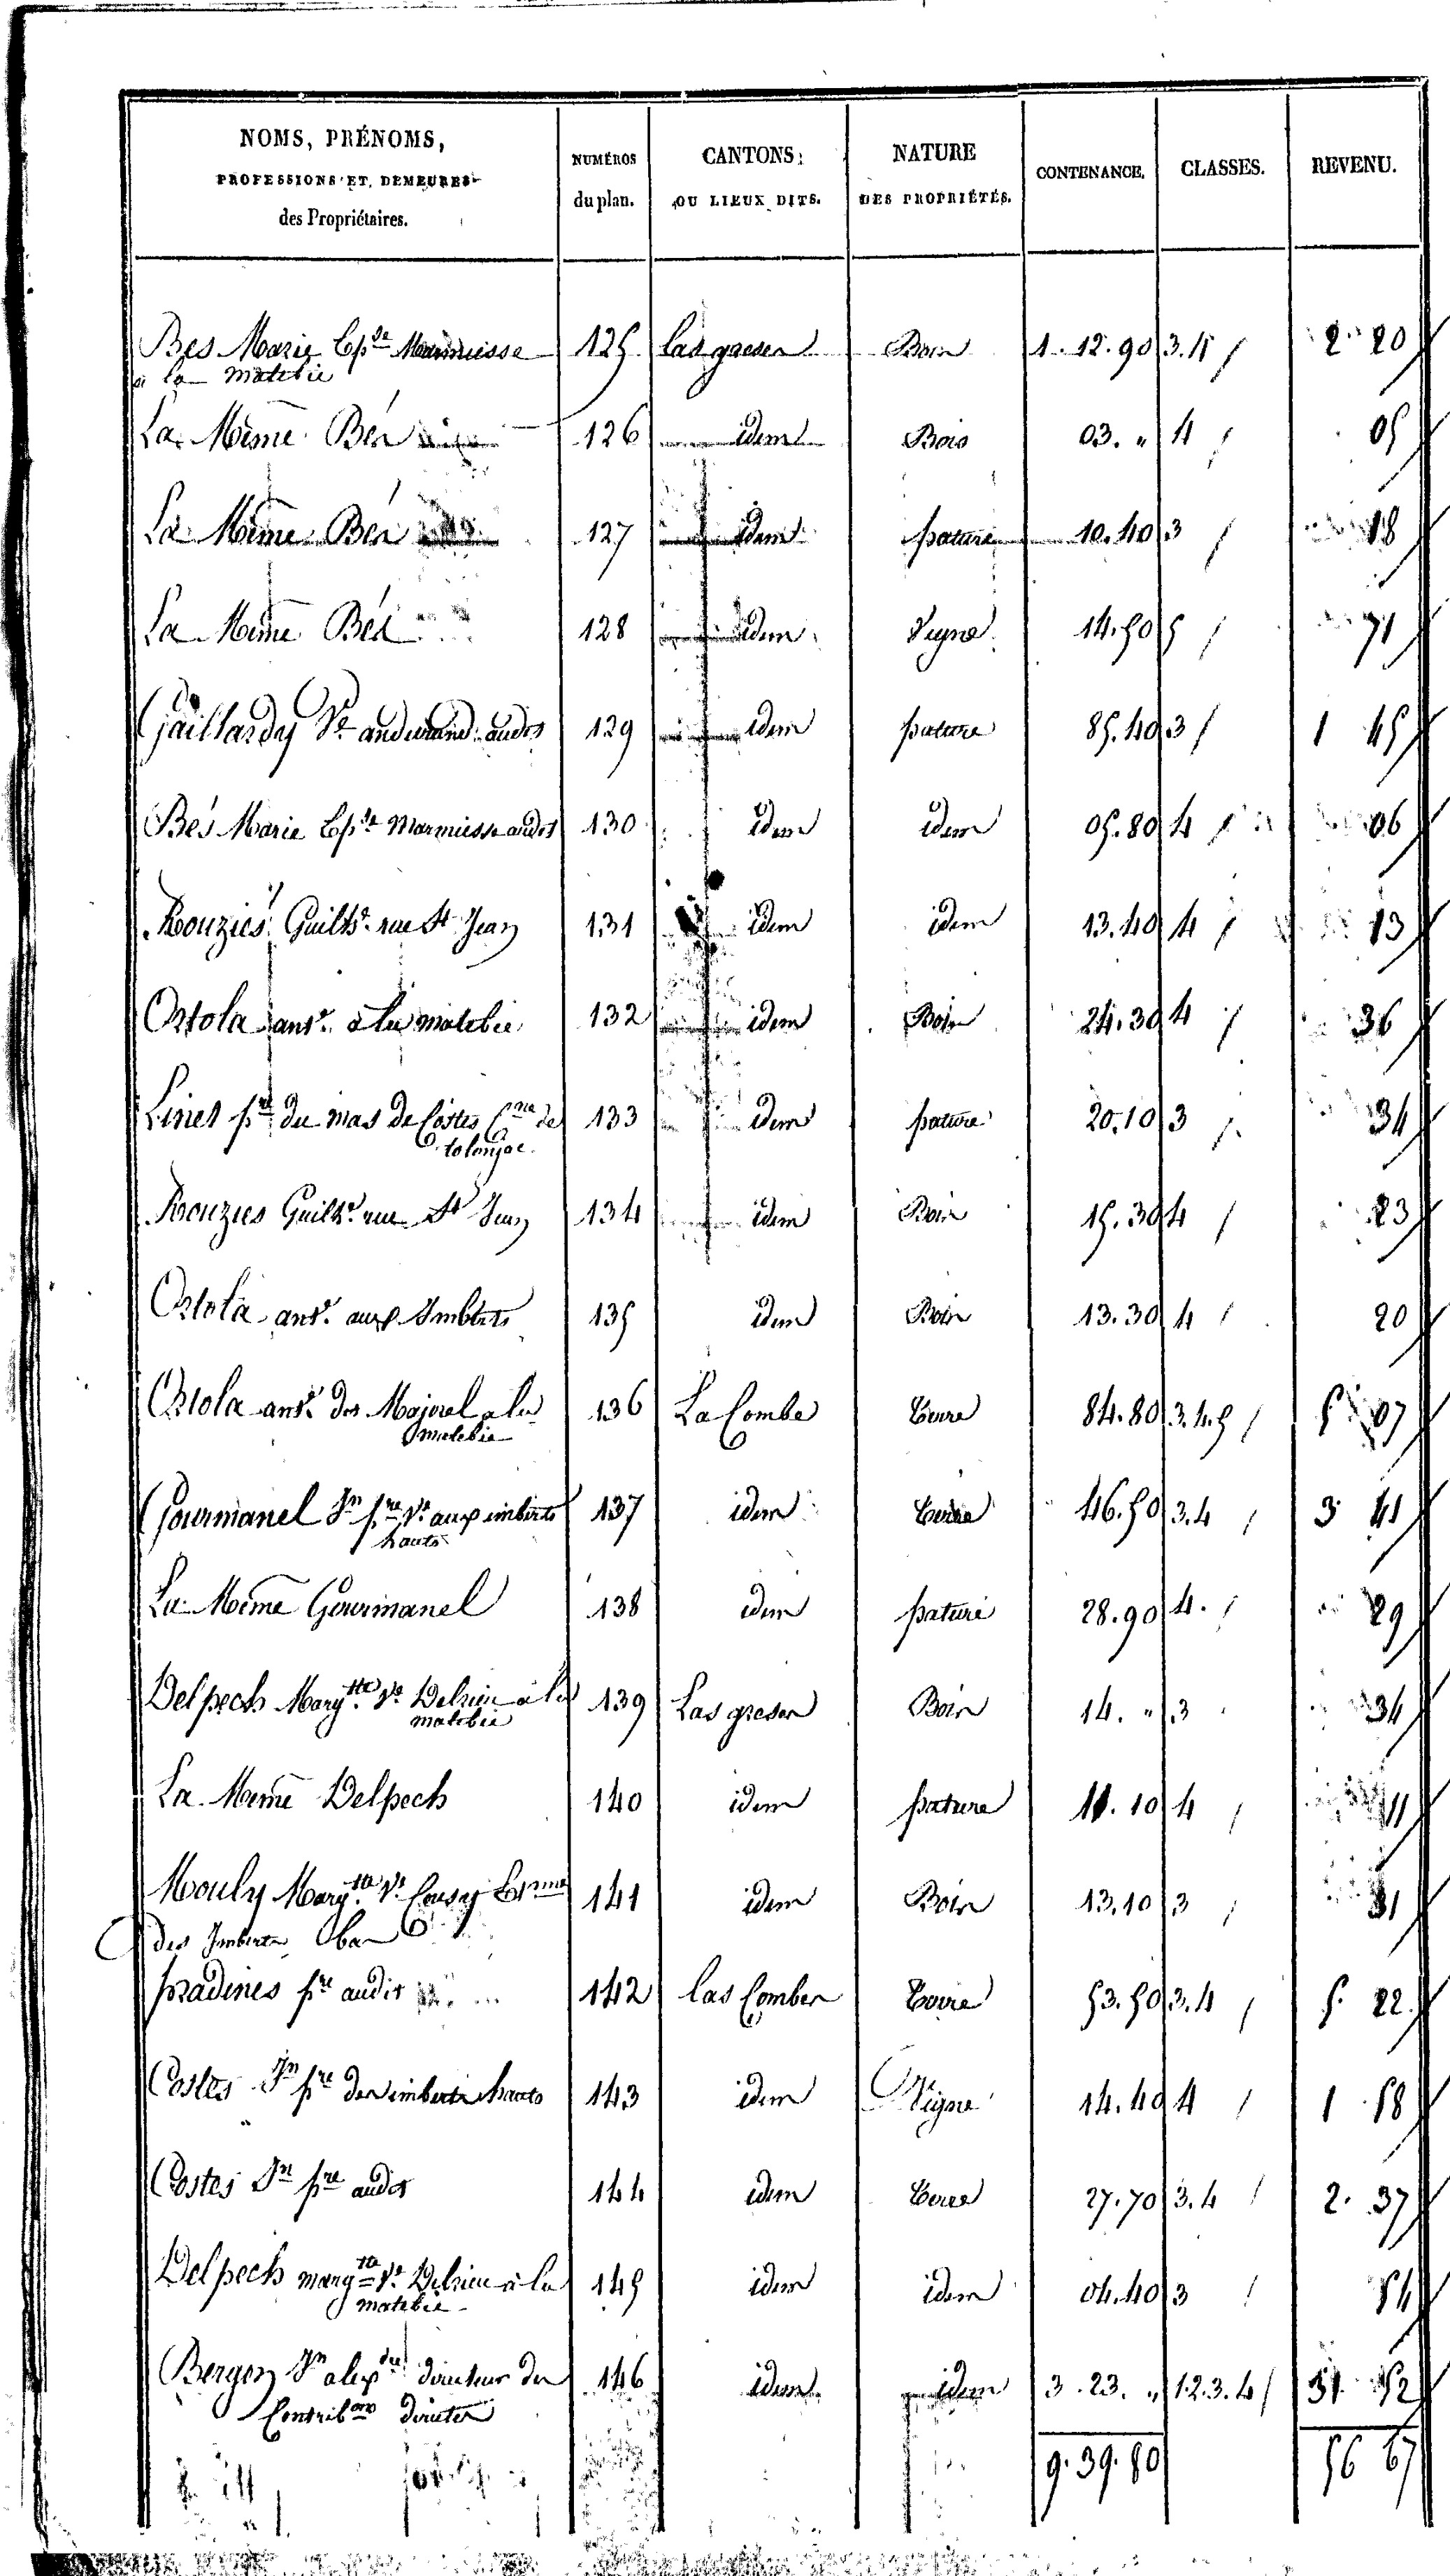 NOMS, PRÉNOMS, PROFESSIONS ET DEMEURES des Propriétaires. NUMÉROS du plan. CANTONS OU LIEUX DITS. NATURE DES PROPRIÉTÉS. CONTENANCE. CLASSES. REVENU.
Bés Marie Epse Marmiesse 125 Las greses Bois 1. 12. 90 3.4 2. 20
à la matebie
La Même Bés 126 idem Bois 03. " 4 05
La Même Bés 127 idem pature 10. 40 3 18
La Même Bés 128 idem Vigne 14. 50 5 71
Gaillardy Ve andurand audit 129 idem pature 85. 40 3 1 45
Bés Marie Epse Marmiesse audit 130 idem idem 05. 80 4 06
Rouziés Guilhe rue St Jean 131 idem idem 13. 40 4 13
Ostola ante à la matebie 132 idem Bois 24. 30 4 36
Linés pre du mas de Costes Cne de 133 idem pature 20. 10 3 34
tolonjac.
Rouzies Guilhe rue St Jean 134 idem Bois 15. 30 4 23
Ostola ante aux Imberts 135 idem Bois 13. 30 4 20
Ostola ante des Majorel a la 136 La Combe terre 84. 80 3.4.5 5 07
matebie
Gourmanel Jn pre Ve aux imberts 137 idem terre 46. 50 3.4 3 41
hauts
La Même Gourmanel 138 idem pature 28. 90 4. 29
Delpech Margte Ve Delrieu à la 139 Las greses Bois 14. " 3 34
matebie
La Même Delpech 140 idem pature 11. 10 4 11
Mouly Margte Ve 141 idem Bois 13. 10 3 31
des Imberts bas
pradines pre audit 142 las Combes terre 53. 50 3.4 5. 22
Costes Jn pre des imberts hauts 143 idem Vigne 14. 40 4 1 58
Costes Jn pre audit 144 idem terre 27. 70 3.4 2. 37
Delpech margte Ve Delrieu à la 145 idem idem 04. 40 3 54
matebie
Bergon Jn alexdre directeur des 146 idem idem 3. 23. " 1.2.3.4 31 52
Contribons directes
9. 39. 80 56 67